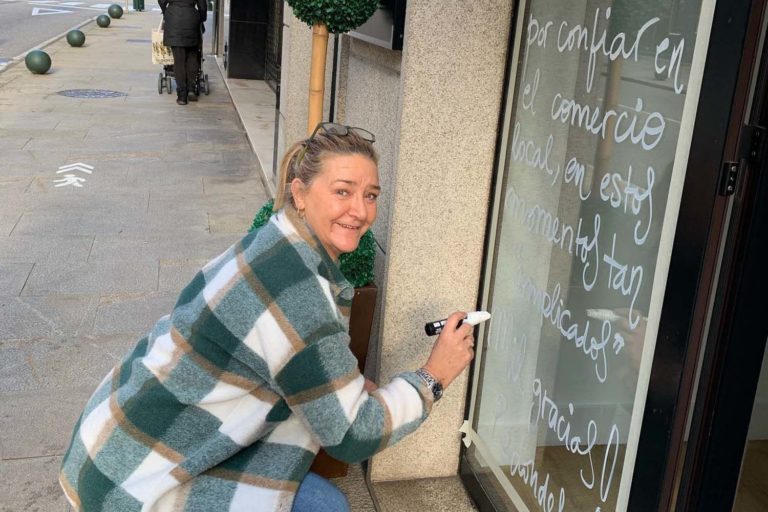 por confiar en
el comercio
local, en estos
momentos tan
implicados"
gracias!